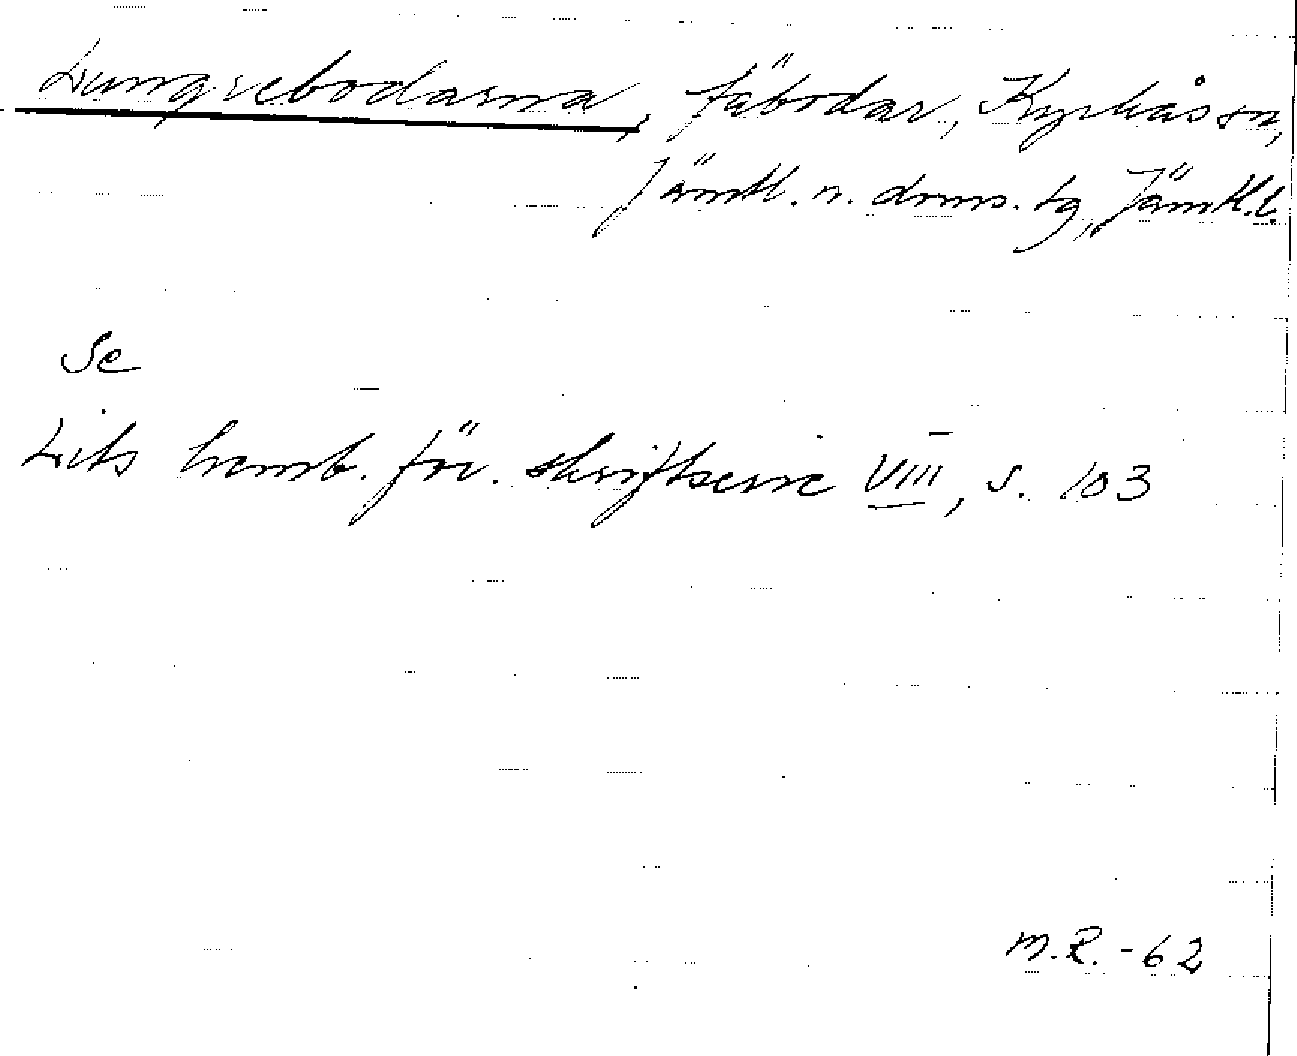 Lungrebodarna, fäbodar, Kyrkås sn,
Jämtl. n. doms. tg, Jämtl. l.
Se
Lits hemb. för. skriftserie VIII, s. 103
M.R. -62